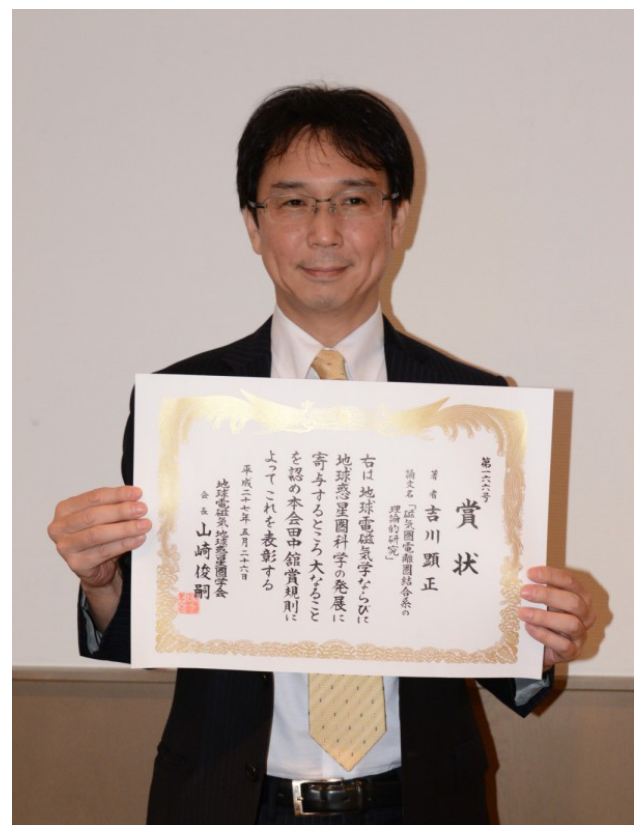 第一六六号
賞状
著者 吉川顕正
論文名 「磁気圏電離圏結合系の
理論的研究」
右は 地球電磁気学ならびに
地球惑星圏科学の発展に
寄与するところ大なること
を認め本会田中舘賞規則に
よって これを表彰する
平成二十七年 五月二十六日
地球電磁気・地球惑星圏学会
会長 山崎俊嗣